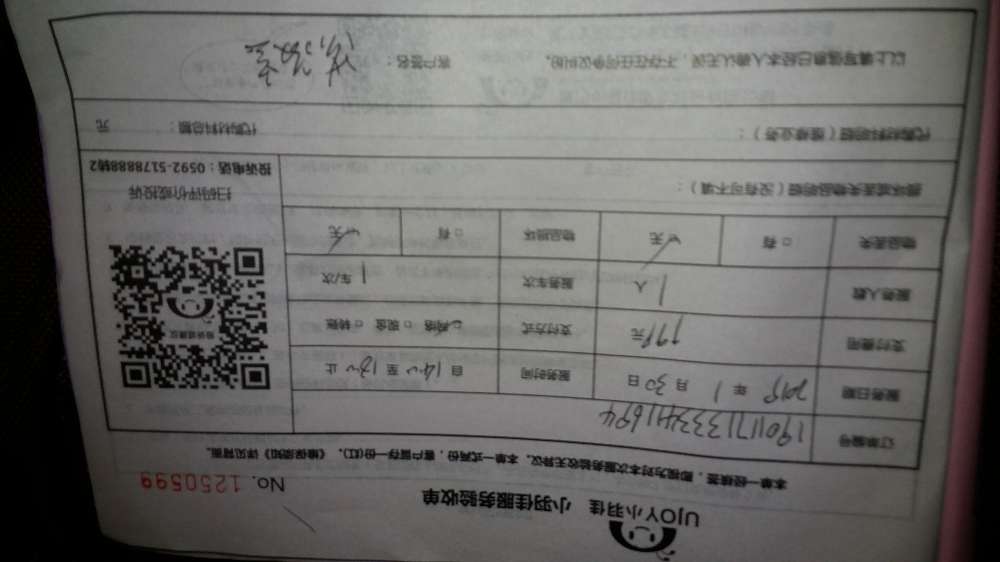 UJOY小羽佳 小羽佳服务验收单
No. 1250599
本单一经核签，即视为对本次服务验收无异议。本单一式两份，客户留存一份(红)。《维保须知》详见背面。
订单编号 1901171333411694
服务日期 年 1 月 30 日 服务时间 自 至 止
支付费用 元 支付方式 □网络 □现金 □转账
服务人数 1 人 服务车次 1 车/次
物品丢失 □有 ☑无 物品损坏 □有 ☑无
投诉建议
扫码评价或投诉
投诉电话：0592-5178888转2
损坏或丢失物品明细（没有可不填）：
代购材料明细（维修业务）： 代购材料总额： 元
以上填写信息已经本人确认无误，不存在任何争议纠纷。 客户签名：